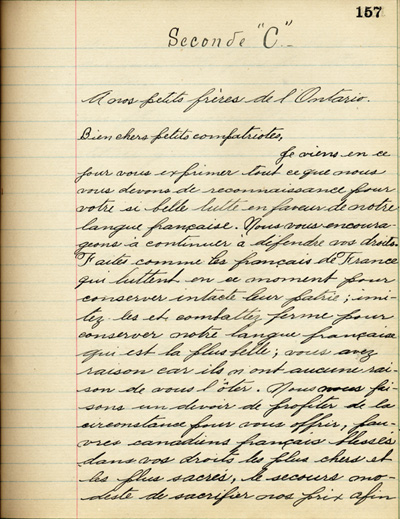 157
Seconde "C"
A nos petits frères de l'Ontario.
Bien chers petits compatriotes,
Je viens en ce
jour vous exprimer tout ce que nous
vous devons de reconnaissance pour
votre si belle lutte en faveur de notre
langue française. Nous vous encoura-
geons à continuer à défendre vos droits.
Faites comme les français de France
qui luttent en ce moment pour
conserver intacte leur patrie; imi-
tez les et combattez ferme pour
conserver notre langue française
qui est la plus belle; vous avez
raison car ils n'ont aucune rai-
son de vous l'ôter. Nous nous fai-
sons un devoir de profiter de la
circonstance pour vous offrir, pau-
vres canadiens français blessés
dans vos droits les plus chers et
les plus sacrés, le secours mo-
deste de sacrifier nos prix afin